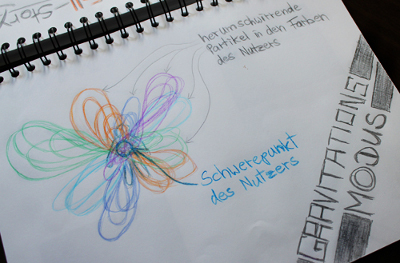 -Stor
herumschwirrende
Partikel in den Farben
des Nutzers
Schwerepunkt
des Nutzers
GRAVITATIONS
MODUS